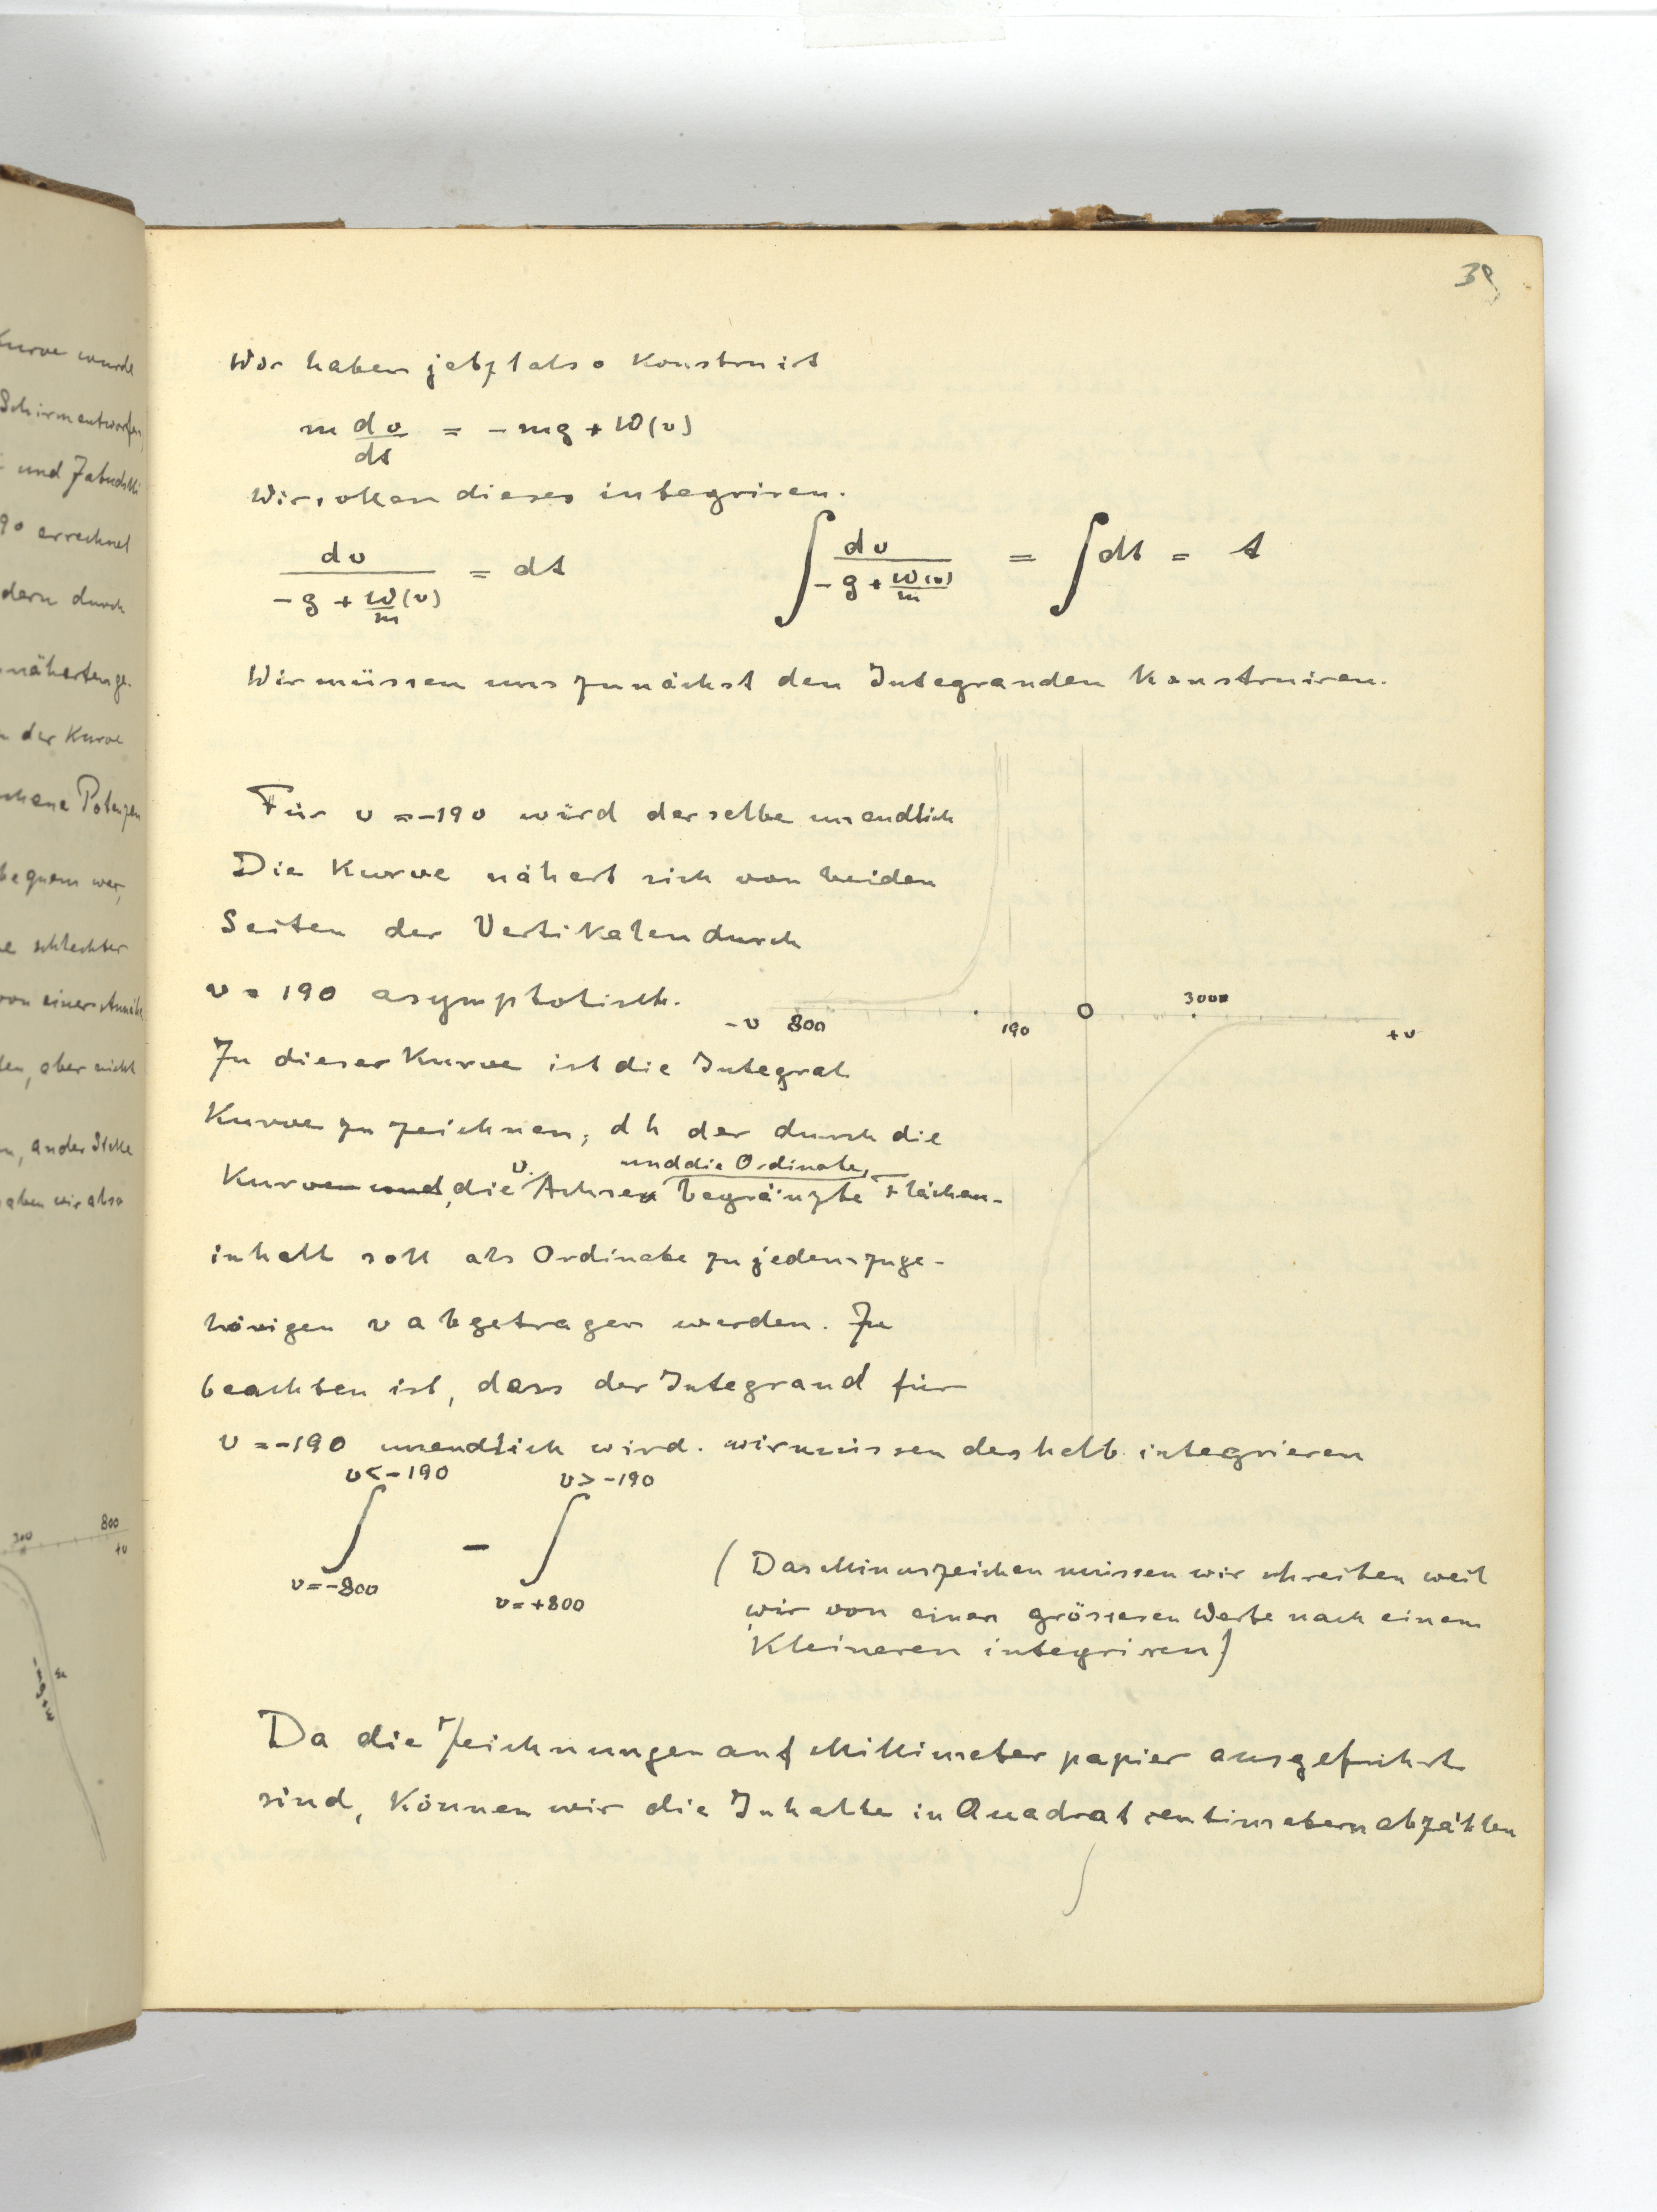 39
Wir haben jetzt also Konstruirt
m dv/dt = - mg + W(v)
Wir sollen dieses integriren.
dv / (- g + W/m (v)) = dt ∫ dv / (- g + W(v)/m) = ∫ dt = t
Wir müssen uns zunächst den Integranden Konstruiren.
Für v = -190 wird derselbe unendlich
Die Kurve nähert sich von beiden
Seiten der Vertikalen durch
v = 190 asymptotisch.
-v 800 190 0 3000 +v
Zu dieser Kurve ist die Integral
Kurve zu zeichnen, d h der durch die
Kurve und, die v. Achsen und die Ordinate, begränzte Flächen-
inhalt soll als Ordinate zu jedem zuge-
hörigen v abgetragen werden. Zu
beachten ist, dass der Integrand für
v = -190 unendlich wird. wir müssen deshalb integrieren
v < -190 v > -190
∫ - ∫
v = -800 v = +800
( Das Minuszeichen müssen wir schreiben weil
wir von einem grösseren Werte nach einem
Kleineren integriren)
Da die Zeichnungen auf Millimeter papier ausgeführt
sind, Können wir die Inhalte in Quadrat centimetern abzählen
Kurve wurde
Schirm entworfen
und
90 errechnet
dern durch
näherten ge-
der Kurve
Potenzen
bequem war,
schlechter
von einer
den, aber nicht
n, an der Stelle
haben wir also
300 800
+v